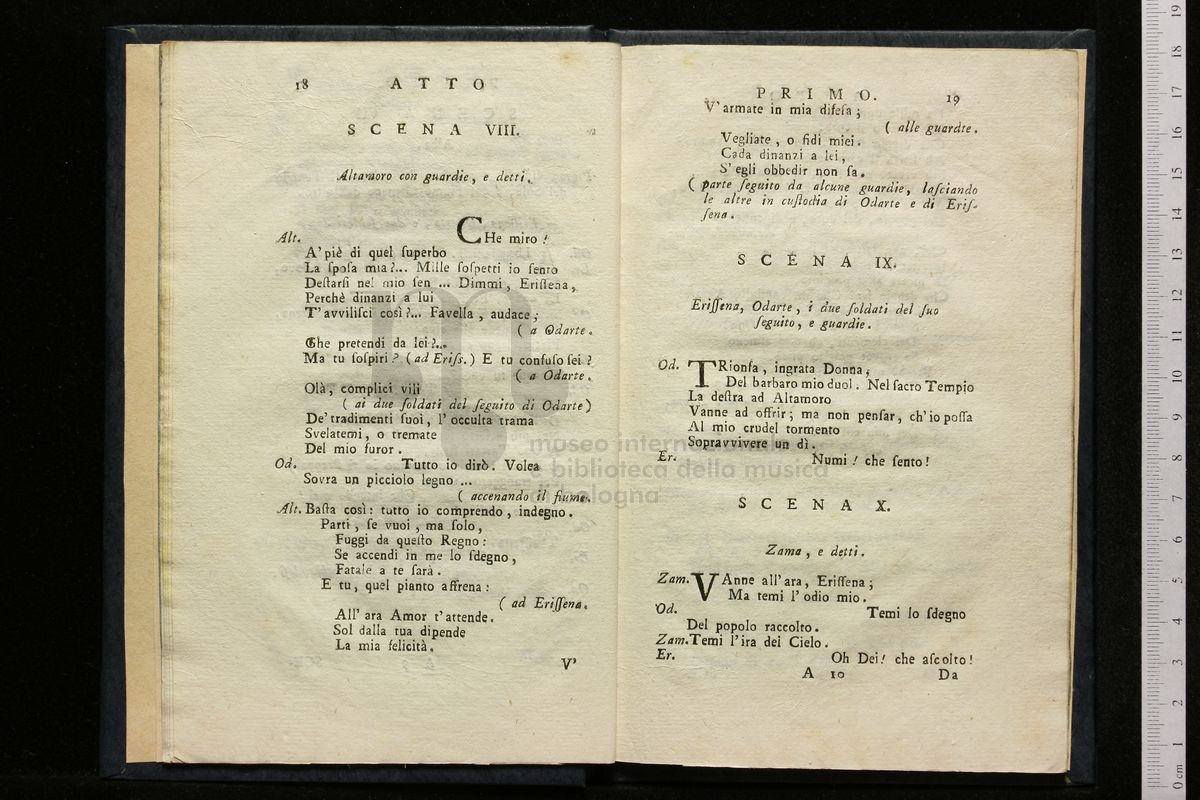 18 ATTO
SCENA VIII.
Altamoro con guardie, e detti.
Alt. CHe miro!
A' piè di quel ſuperbo
La ſpoſa mia?... Mille ſoſpetti io ſento
Deſtarſi nel mio ſen ... Dimmi, Eriſſena,
Perchè dinanzi a lui
T' avviliſci così?... Favella, audace;
( a Odarte.
Che pretendi da lei?...
Ma tu ſoſpiri? (ad Eriſs.) E tu confuſo ſei?
( a Odarte.
Olà, complici vili
( ai due ſoldati del ſeguito di Odarte)
De' tradimenti ſuoi, l' occulta trama
Svelatemi, o tremate
Del mio furor.
Od. Tutto io dirò. Volea
Sovra un picciolo legno ...
( accenando il fiume.
Alt. Baſta così: tutto io comprendo, indegno.
Parti, ſe vuoi, ma ſolo,
Fuggi da queſto Regno:
Se accendi in me lo ſdegno,
Fatale a te ſarà.
E tu, quel pianto affrena:
( ad Eriſſena.
All' ara Amor t' attende.
Sol dalla tua dipende
La mia felicità.
V'
PRIMO. 19
V' armate in mia difeſa;
( alle guardie.
Vegliate, o fidi miei.
Cada dinanzi a lei,
S' egli obbedir non ſa.
( parte ſeguito da alcune guardie, laſciando
le altre in cuſtodia di Odarte e di Eriſ-
ſena.
SCENA IX.
Eriſſena, Odarte, i due ſoldati del ſuo
ſeguito, e guardie.
Od. TRionfa, ingrata Donna,
Del barbaro mio duol. Nel ſacro Tempio
La deſtra ad Altamoro
Vanne ad offrir; ma non penſar, ch' io poſſa
Al mio crudel tormento
Sopravvivere un dì.
Er. Numi! che ſento!
SCENA X.
Zama, e detti.
Zam. VAnne all' ara, Eriſſena;
Ma temi l' odio mio.
Od. Temi lo ſdegno
Del popolo raccolto.
Zam. Temi l' ira del Cielo.
Er. Oh Dei! che aſcolto!
A 10 Da
museo internazionale
e biblioteca della musica
di bologna
0 cm 1 2 3 4 5 6 7 8 9 10 11 12 13 14 15 16 17 18 19